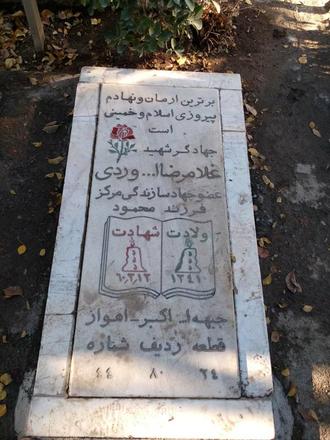 برترین ارمان و نهادم
پیروزی اسلام و خمینی
است
جهادگر شهید
غلامرضا ا... وردی
عضو جهاد سازندگی مرکز
فرزند محمود
ولادت شهادت
۱۳۴۱ ۶۰,۳,۱۳
جبهه ا.. اکبر_اهواز
قطعه ردیف شماره
۲۴ ۸۰ ۴۴